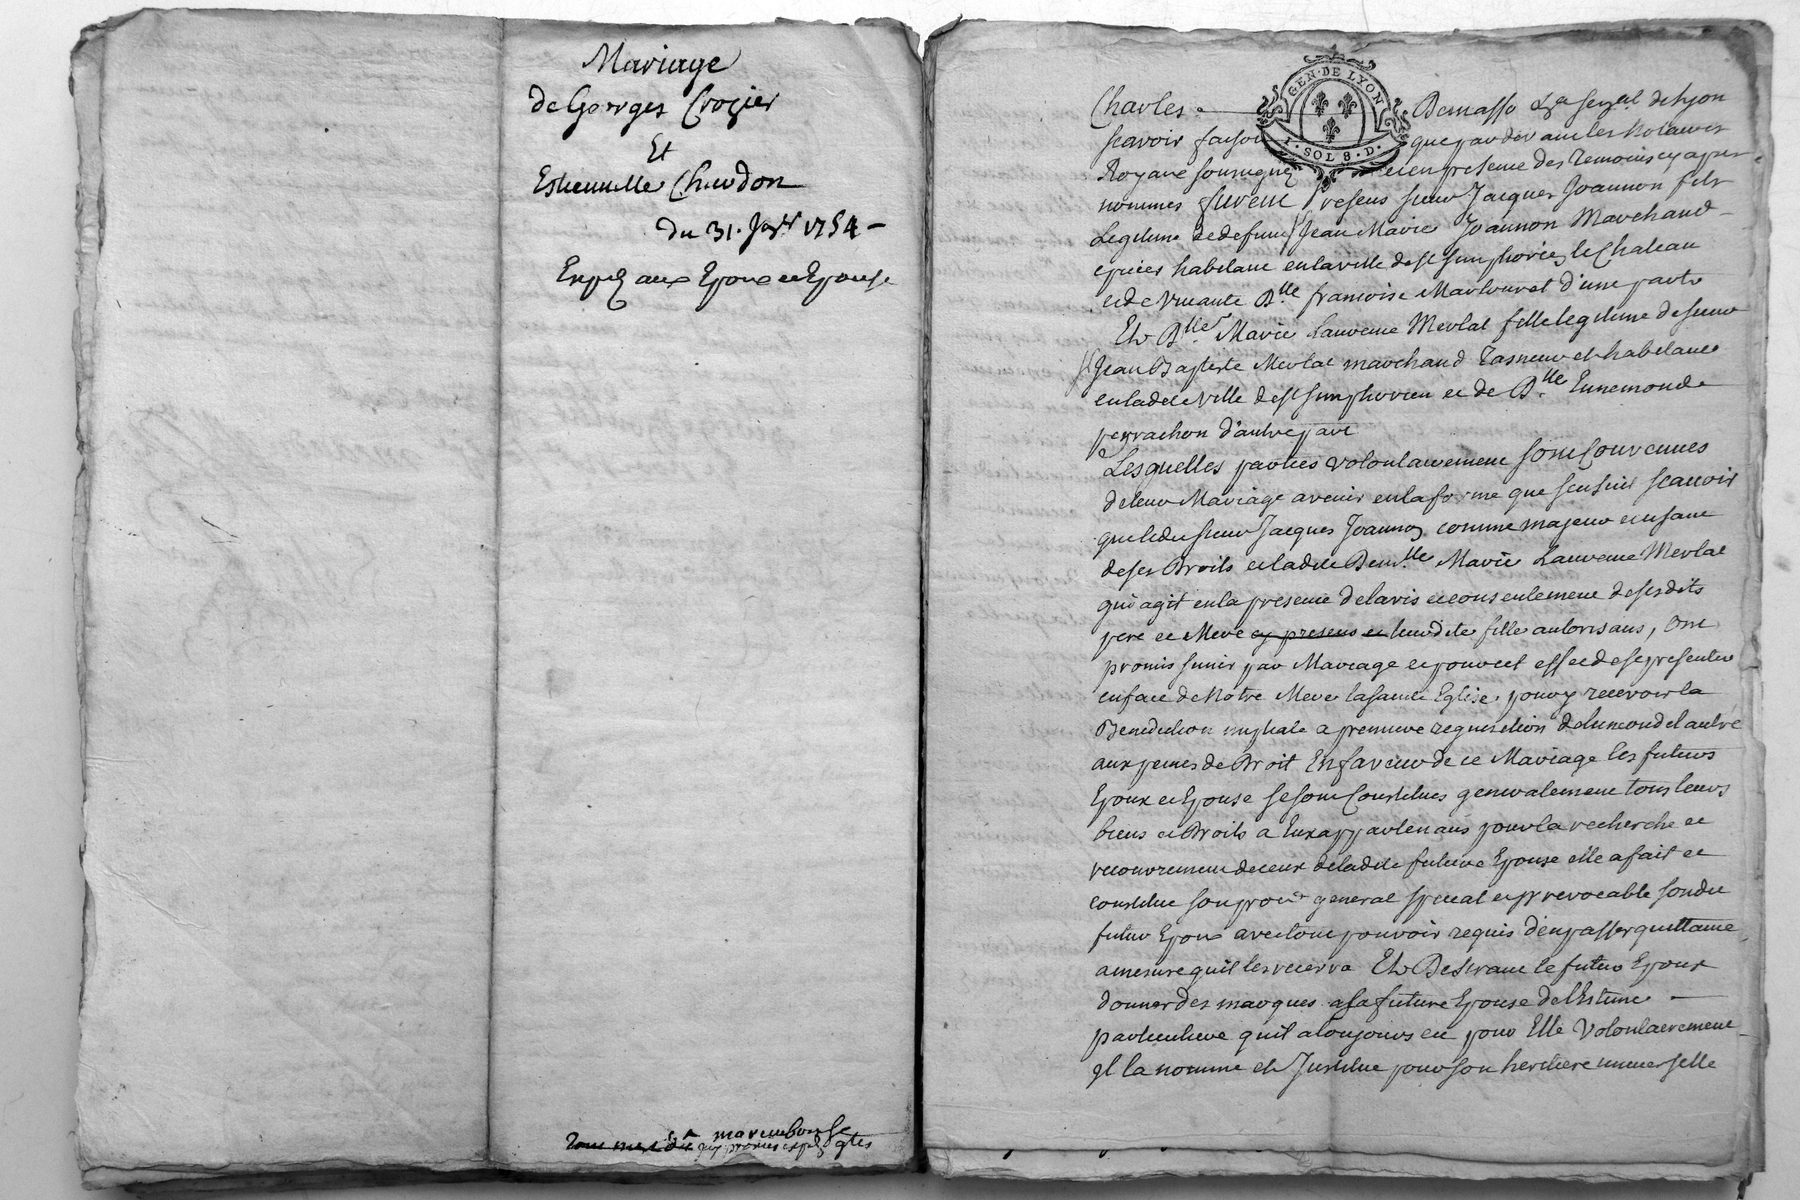 Mariage
de Georges Crozier
Et
Estiennette Chardon
du 31. Janr 1754 -
Expéd aux Epoux et Epouse
GEN. DE LYON
1. SOL 8. D.
Charles Demasso Lza senzal de Lyon
scavoir faison que pardevant les Notaires
Royaux soussignez et en presence des Temoins cy apres
nommes furent presens sieur Jacques Joannon fils
Legitime de defunt Jean Marie Joannon Marchand
epicier habitant en la ville de st simphorien le Chateau
et de vivante Dlle francoise Marlouret d'une part
Et Dlle Marie Laurence Merlat fille legitime de sieur
Jean Baptiste Merlat marchand Tanneur et habitant
en ladite ville de st simphorien et de Dlle Ennemonde
perrachon d'autre part
Lesquelles parties volontairement sont Convenues
de leur Mariage avenir en la forme que sensuit scauoir
que ledit sieur Jacques Joannon comme majeur et usant
de ses Droits et ladite Demlle Marie Laurence Merlat
qui agit en la presence de lavis et consentement de sesdits
pere et Mere cy presens et leurdite fille autorisans, ont
promis sunir par Mariage et pour cet effet de se presenter
en face de Notre Mere la sainte Eglise, pour y recevoir la
Benediction nuptiale a premiere requisition de lun ou de lautre
aux peines de Droit En faveur de ce Mariage les futurs
Epoux et Epouse se sont Constitues generalement tous leurs
biens et Droits a Eux appartenans pour la recherche et
recouvrement de ceux de ladite future Epouse elle a fait et
constitue son procr general special et irrevocable sondit
futur Epoux avec tout pouvoir requis d'en passer quittance
a mesure quil les recevra Et Desirant le futur Epoux
donner des marques a sa future Epouse de lEstime
particuliere quil a toujours eu pour Elle Volontairement
Il la nomme et Institue pour son heritiere universelle